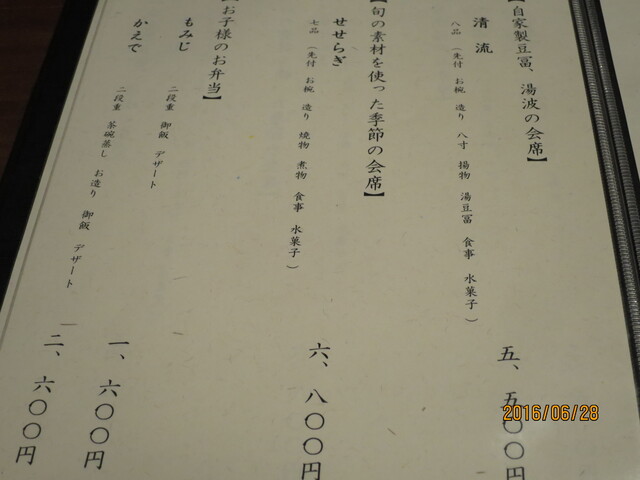 【自家製豆冨、湯波の会席】
清流
八品（先付 お椀 造り 八寸 揚物 湯豆冨 食事 水菓子）
五、五〇〇円
【旬の素材を使った季節の会席】
せせらぎ
七品（先付 お椀 造り 焼物 煮物 食事 水菓子）
六、八〇〇円
【お子様のお弁当】
もみじ
二段重 御飯 デザート
一、六〇〇円
かえで
二段重 茶碗蒸し お造り 御飯 デザート
二、六〇〇円
2016/06/28